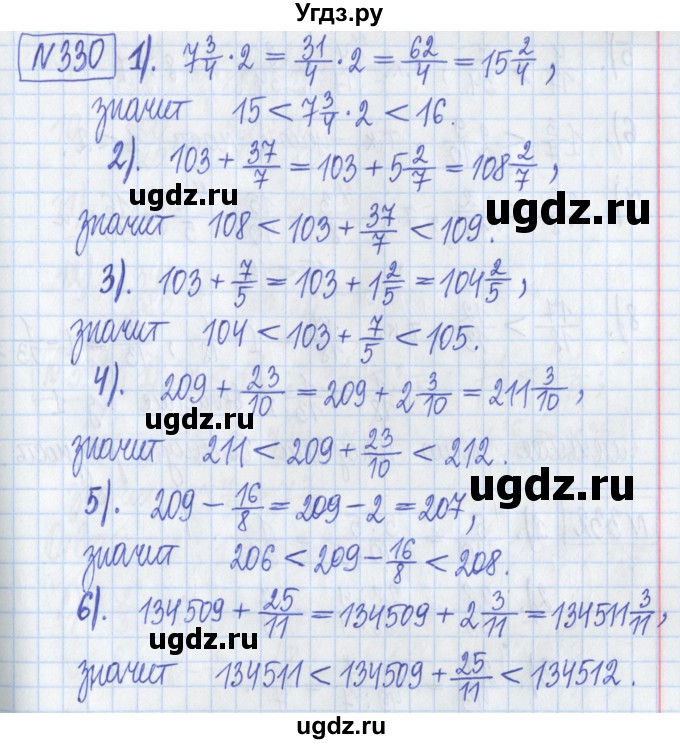 Угдз.ру
№330 1). 7 3/4 · 2 = 31/4 · 2 = 62/4 = 15 2/4,
значит 15 < 7 3/4 · 2 < 16.
2). 103 + 37/7 = 103 + 5 2/7 = 108 2/7,
ugdz.ru
ugdz.ru
значит 108 < 103 + 37/7 < 109.
3). 103 + 7/5 = 103 + 1 2/5 = 104 2/5,
значит 104 < 103 + 7/5 < 105.
4). 209 + 23/10 = 209 + 2 3/10 = 211 3/10,
ugdz.ru
значит 211 < 209 + 23/10 < 212.
ugdz.ru
5). 209 - 16/8 = 209 - 2 = 207,
значит 206 < 209 - 16/8 < 208.
6). 134509 + 25/11 = 134509 + 2 3/11 = 134511 3/11,
ugdz.ru
значит 134511 < 134509 + 25/11 < 134512.
ugdz.ru